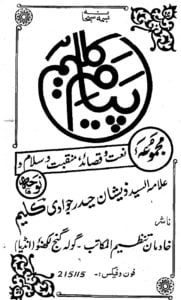 پیام کلیم
مجموعہ: نعت و قصائد منقبت و سلام و نوحہ
علامہ السید ذیشان حیدر جوادی کلیم
ناشر
خادمان تنظیم المکاتب۔ گولہ گنج لکھنؤ (انڈیا)
فون و فیکس:- 215115